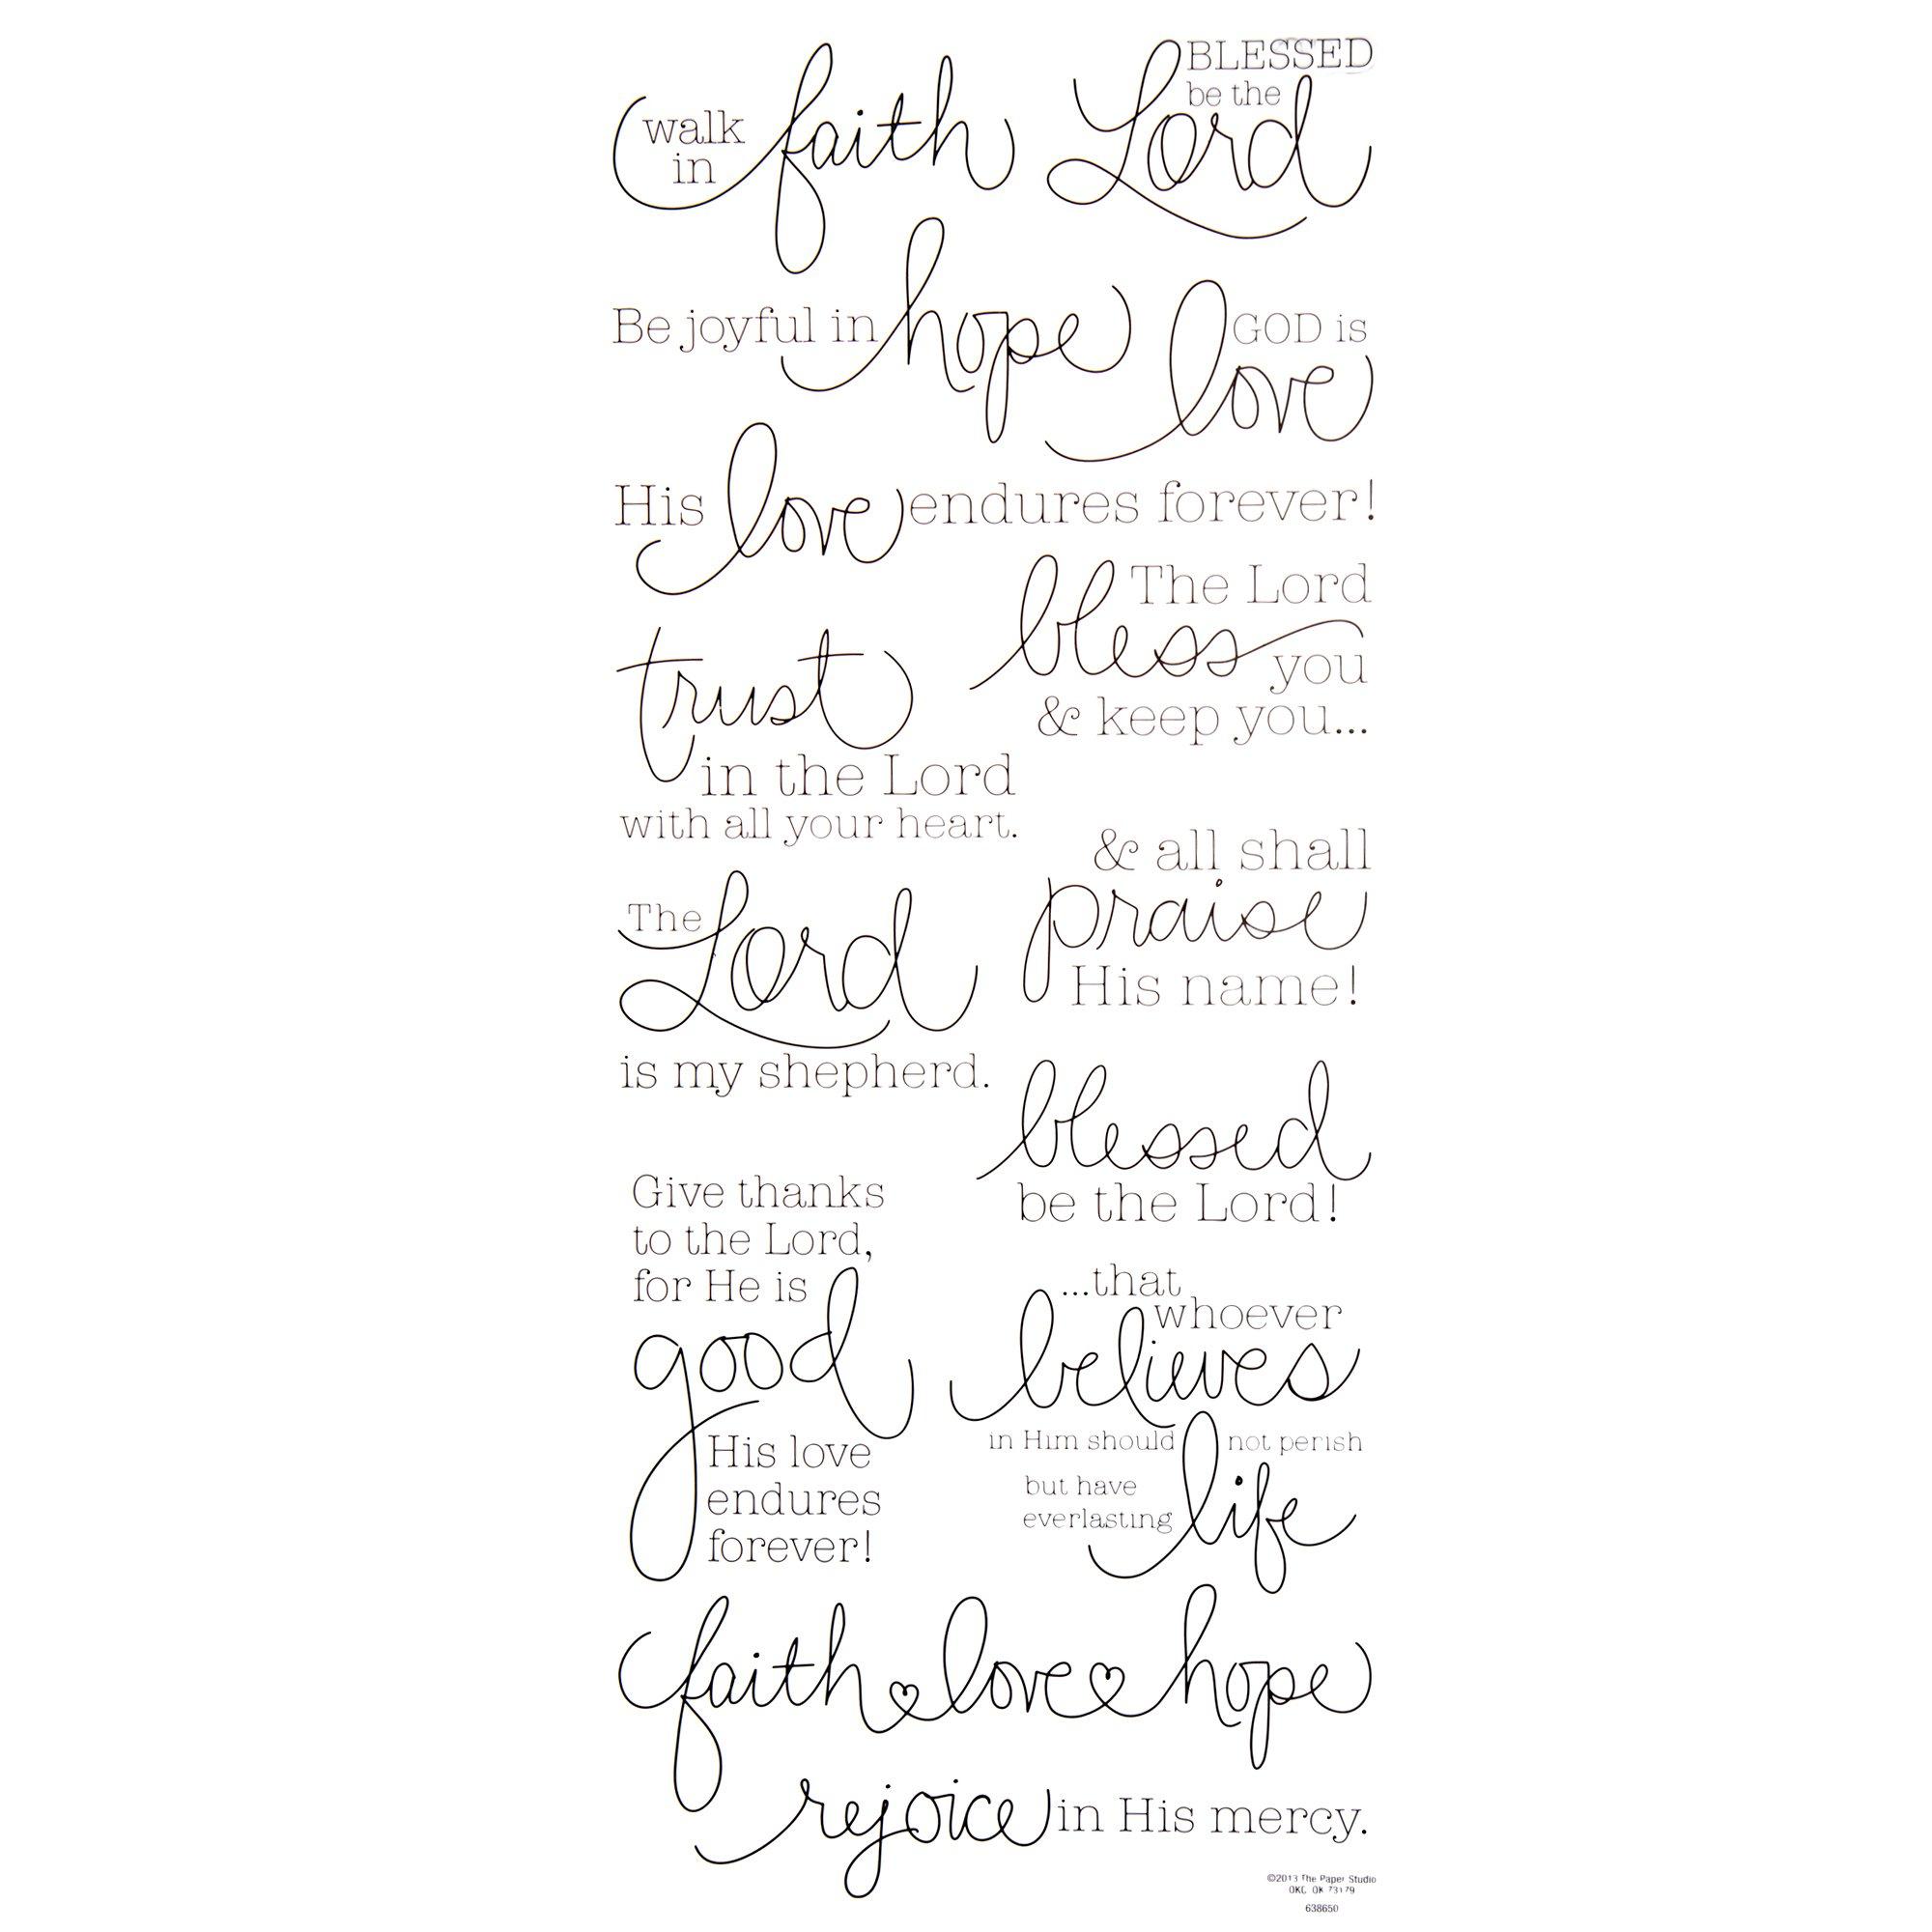 walk
in faith
BLESSED
be the
Lord
Be joyful in hope
GOD is
love
His love endures forever!
The Lord
bless you
& keep you...
trust
in the Lord
with all your heart.
& all shall
praise
His name!
The Lord
is my shepherd.
blessed
be the Lord!
Give thanks
to the Lord,
for He is
good
His love
endures
forever!
...that
whoever
believes
in Him should not perish
but have
everlasting life
faith love hope
rejoice in His mercy.
©2013 The Paper Studio
OKC, OK 73179
638650